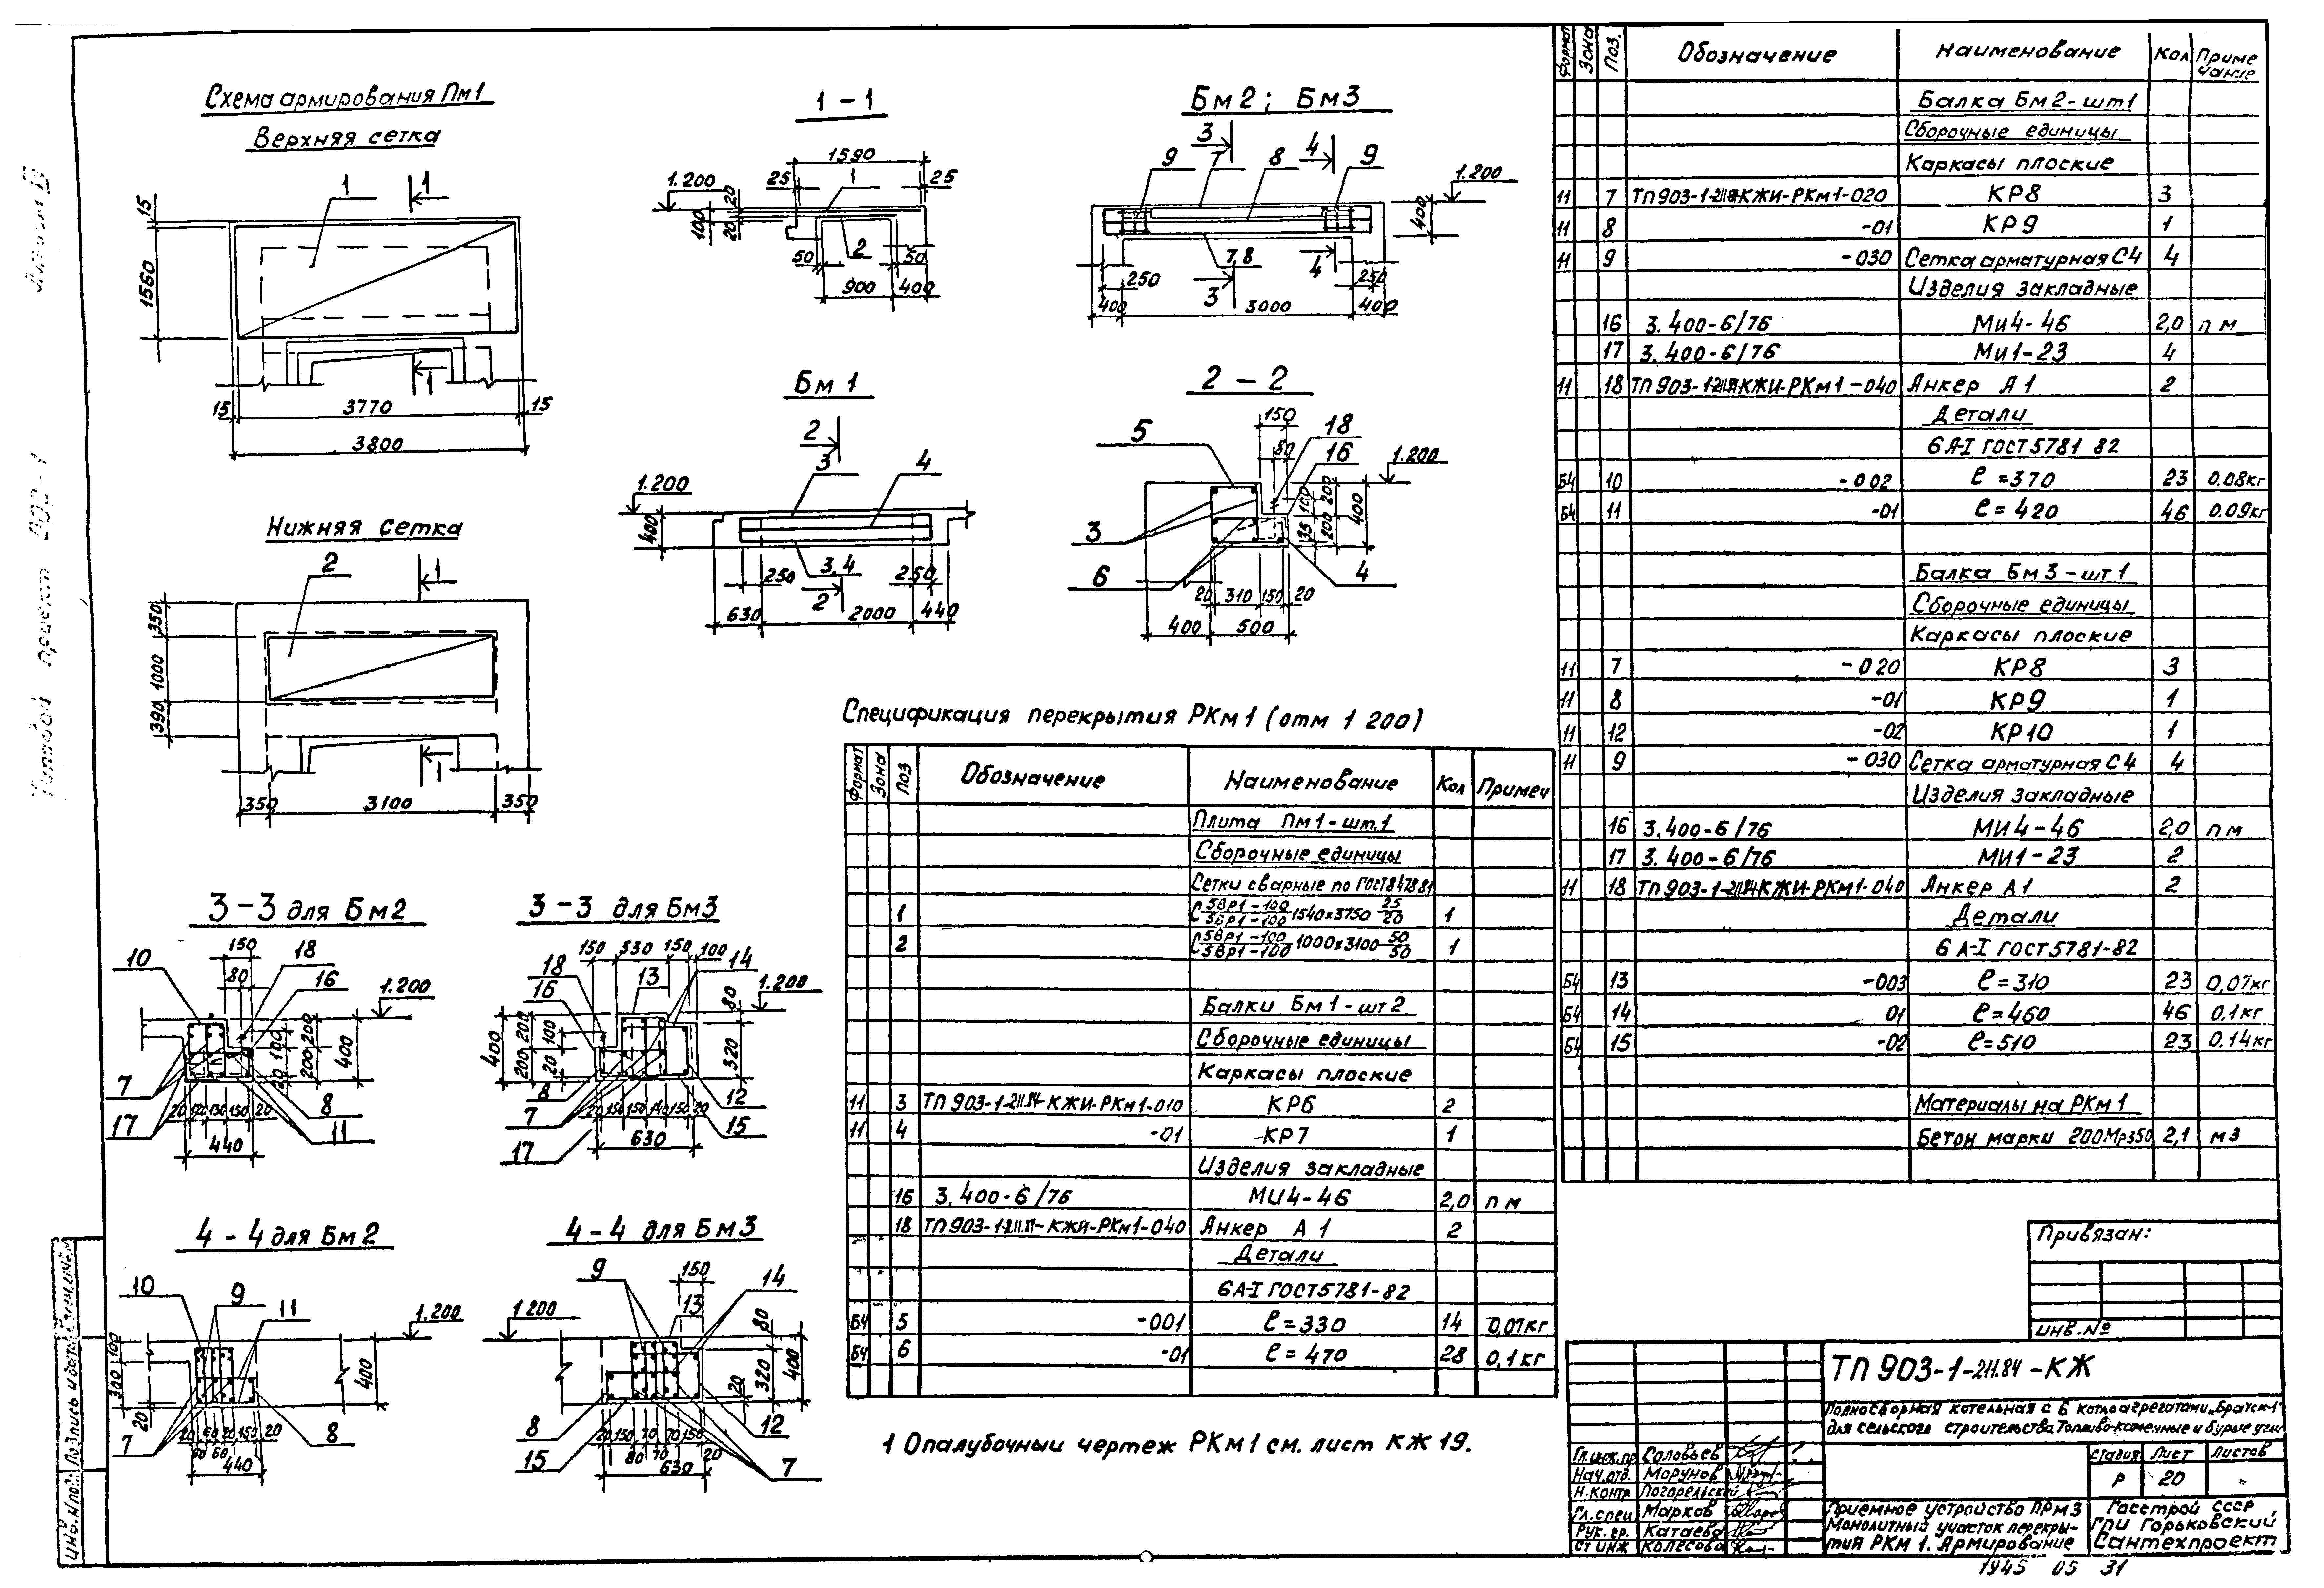 Схема армирования Пм1
Верхняя сетка
1
1
15
1560
1
15
3770
15
3800
1-1
1590
25
1
25
1.200
20
100
20
2
50
50
900
400
Бм2; Бм3
3
4
9
7
8
9
1.200
400
7,8
4
3
250
250
400
3000
400
Нижняя сетка
2
1
350
1000
390
1
350
3100
350
Бм 1
2
3
4
1.200
400
3,4
250
250
2
630
2000
440
2-2
150
5
18
80
16
1.200
100
200
400
35
200
3
6
4
20
310
150
20
400
500
3-3 для Бм2
150
10
18
80
16
1.200
100
200
400
200
20
7
8
17
11
20
120
130
150
20
440
3-3 для Бм3
150
330
150
100
18
13
14
16
80
1.200
400
200
100
200
20
320
8
7
12
17
15
20
150
150
140
150
20
630
4-4 для Бм2
10
9
11
1.200
100
300
20
400
7
8
20
60
20
150
20
60
60
440
4-4 для Бм3
9
150
14
13
1.200
80
320
400
20
8
12
15
7
20
150
70
70
150
20
80
70
630
Спецификация перекрытия РКм1 (отм 1 200)
Формат Зона Поз Обозначение Наименование Кол Примеч
Плита Пм1-шт.1
Сборочные единицы
Сетки сварные по ГОСТ8478 81
1 С 5Вр1-100/5Вр1-100 1540×3750 25/20 1
2 С 5Вр1-100/5Вр1-100 1000×3100 50/50 1
Балки Бм1-шт2
Сборочные единицы
Каркасы плоские
11 3 ТП 903-1-211.84-КЖИ-РКм1-010 КР6 2
11 4 -01 КР7 1
Изделия закладные
16 3.400-6/76 МИ4-46 2,0 п м
18 ТП903-1-211.84-КЖИ-РКм1-040 Анкер А 1 2
Детали
6А-I ГОСТ5781-82
Б4 5 -001 ℓ=330 14 0,07кг
Б4 6 -01 ℓ=470 28 0,1кг
1 Опалубочный чертеж РКм1 см. лист КЖ 19.
Формат Зона Поз. Обозначение Наименование Кол Примечание
Балка Бм2-шт1
Сборочные единицы
Каркасы плоские
11 7 ТП903-1-211.84КЖИ-РКм1-020 КР8 3
11 8 -01 КР9 1
11 9 -030 Сетка арматурная С4 4
Изделия закладные
16 3.400-6/76 Ми4-46 2,0 п м
17 3.400-6/76 Ми1-23 4
11 18 ТП903-1-211.84КЖИ-РКм1-040 Анкер А1 2
Детали
6А-I ГОСТ5781 82
Б4 10 -002 ℓ=370 23 0.08кг
Б4 11 -01 ℓ=420 46 0.09кг
Балка Бм3-шт1
Сборочные единицы
Каркасы плоские
11 7 -020 КР8 3
11 8 -01 КР9 1
11 12 -02 КР10 1
11 9 -030 Сетка арматурная С4 4
Изделия закладные
16 3.400-6/76 МИ4-46 2,0 п м
17 3.400-6/76 МИ1-23 2
11 18 ТП903-1-211.84КЖИ-РКм1-040 Анкер А1 2
Детали
6 А-I ГОСТ5781-82
Б4 13 -003 ℓ=310 23 0,07кг
Б4 14 01 ℓ=460 46 0.1кг
Б4 15 -02 ℓ=510 23 0.14кг
Материалы на РКм1
Бетон марки 200Мрз50 2,1 м3
Привязан:
инв.№
ТП 903-1-211.84-КЖ
Полносборная котельная с 6 котлоагрегатами „Братск-1"
для сельского строительства Топливо-каменные и бурые угли
Стадия Лист Листов
Р 20
Гл.инж.пр Соловьев
Нач.отд. Морунов
Н.контр Погорельский
Гл.спец Марков
Рук.гр. Катаева
Ст инж Колесова
Приемное устройство ПРм3
Монолитный участок перекры-
тия РКм 1. Армирование
Госстрой СССР
ГПИ Горьковский
Сантехпроект
1945 05 31
Типовой проект 903-1
Альбом II
Инв.№подл. Подпись и дата Взам.инв.№